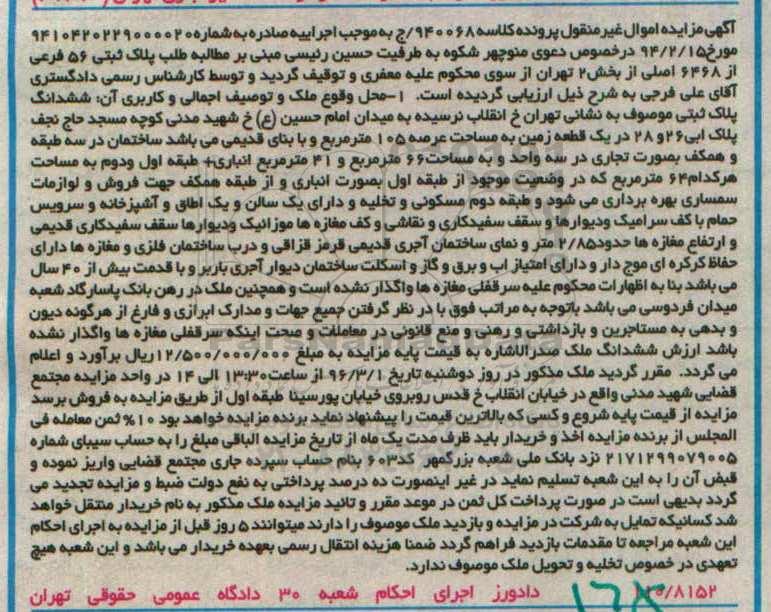 آگهی مزایده اموال غیر منقول پرونده کلاسه ۹۴۰۰۶۸/ج به موجب اجراییه صادره به شماره ۹۴۱۰۴۲۰۲۲۹۰۰۰۰۲۰
مورخ ۹۴/۲/۱۵ درخصوص دعوی منوچهر شکوه به طرفیت حسین رئیسی مبنی بر مطالبه طلب پلاک ثبتی ۵۶ فرعی
از ۶۴۶۸ اصلی از بخش ۲ تهران از سوی محکوم علیه معفری و توقیف گردید و توسط کارشناس رسمی دادگستری
آقای علی فرجی به شرح ذیل ارزیابی گردیده است. ۱-محل وقوع ملک و توصیف اجمالی و کاربری آن: ششدانگ
پلاک ثبتی موصوف به نشانی تهران خ انقلاب نرسیده به میدان امام حسین (ع) خ شهید مدنی کوچه مسجد حاج نجف
پلاک ابی ۲۶ و ۲۸ در یک قطعه زمین به مساحت عرصه ۱۰۵ مترمربع و با بنای قدیمی می باشد ساختمان در سه طبقه
و همکف بصورت تجاری در سه واحد و به مساحت ۶۶ مترمربع و ۴۱ مترمربع انباری+ طبقه اول ودوم به مساحت
هرکدام ۶۴ مترمربع که در وضعیت موجود از طبقه اول بصورت انباری و از طبقه همکف جهت فروش و لوازمات
سمساری بهره برداری می شود و طبقه دوم مسکونی و تخلیه و دارای یک سالن و یک اطاق و آشپزخانه و سرویس
حمام با کف سرامیک ودیوارها و سقف سفیدکاری و نقاشی و کف مغازه ها موزائیک ودیوارها سقف سفیدکاری قدیمی
و ارتفاع مغازه ها حدود ۲/۸۵ متر و نمای ساختمان آجری قدیمی قرمز قزاقی و درب ساختمان فلزی و مغازه ها دارای
حفاظ کرکره ای موج دار و دارای امتیاز اب و برق و گاز و اسکلت ساختمان دیوار آجری باربر و با قدمت بیش از ۴۰ سال
می باشد بنا به اظهارات محکوم علیه سرقفلی مغازه ها واگذار نشده است و همچنین ملک در رهن بانک پاسارگاد شعبه
میدان فردوسی می باشد باتوجه به مراتب فوق با در نظر گرفتن جمیع جهات و مدارک ابرازی و فارغ از هرگونه دیون
و بدهی به مستاجرین و بازداشتی و رهنی و منع قانونی در معاملات و صحت اینکه سرقفلی مغازه ها واگذار نشده
باشد ارزش ششدانگ ملک صدرالاشاره به قیمت پایه مزایده به مبلغ ۱۲/۵۰۰/۰۰۰/۰۰۰ریال برآورد و اعلام
می گردد. مقرر گردید ملک مذکور در روز دوشنبه تاریخ ۹۶/۳/۱ از ساعت ۱۳:۳۰ الی ۱۴ در واحد مزایده مجتمع
قضایی شهید مدنی واقع در خیابان انقلاب خ قدس روبروی خیابان پورسینا طبقه اول از طریق مزایده به فروش برسد
مزایده از قیمت پایه شروع و کسی که بالاترین قیمت را پیشنهاد نماید برنده مزایده خواهد بود ۱۰% ثمن معامله فی
المجلس از برنده مزایده اخذ و خریدار باید ظرف مدت یک ماه از تاریخ مزایده الباقی مبلغ را به حساب سیبای شماره
۲۱۷۱۲۹۹۰۷۹۰۰۵ نزد بانک ملی شعبه بزرگمهر کد ۶۰۳ بنام حساب سپرده جاری مجتمع قضایی واریز نموده و
قبض آن را به این شعبه تسلیم نماید در غیر اینصورت ده درصد پرداختی به نفع دولت ضبط و مزایده تجدید می
گردد بدیهی است در صورت پرداخت کل ثمن در موعد مقرر و تائید مزایده ملک مذکور به نام خریدار منتقل خواهد
شد کسانیکه تمایل به شرکت در مزایده و بازدید ملک موصوف را دارند میتوانند ۵ روز قبل از مزایده به اجرای احکام
این شعبه مراجعه تا مقدمات بازدید فراهم گردد ضمنا هزینه انتقال رسمی بعهده خریدار می باشد و این شعبه هیچ
تعهدی در خصوص تخلیه و تحویل ملک موصوف ندارد.
۱۱۰/۸۱۵۲ دادورز اجرای احکام شعبه ۳۰ دادگاه عمومی حقوقی تهران